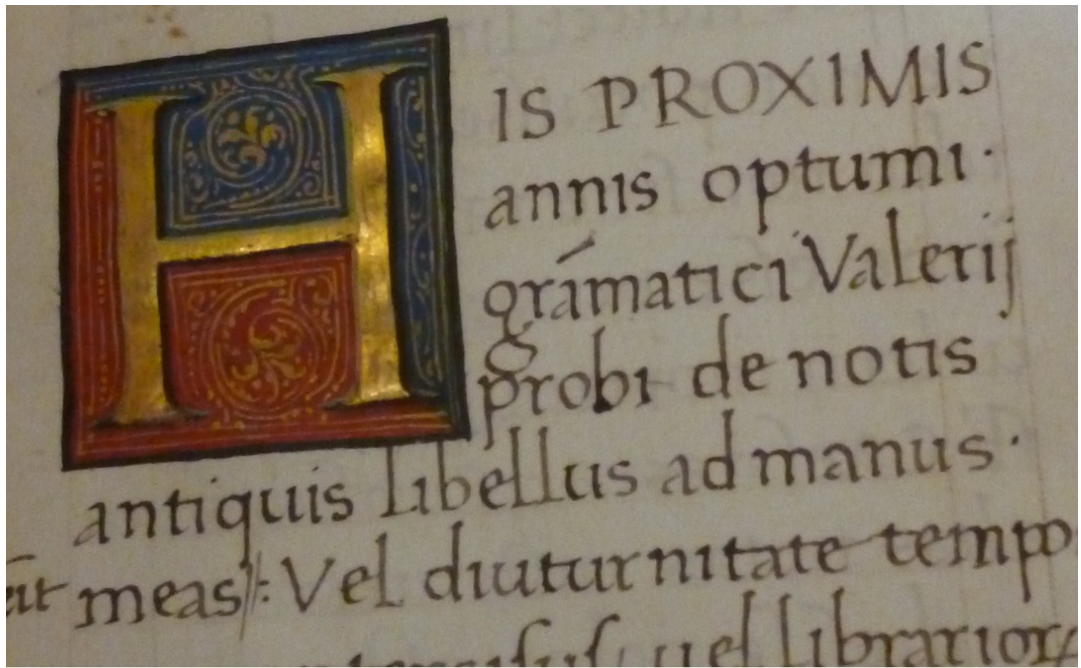 HIS PROXIMIS
annis optumi·
grámatici Valerij
probi de notis
antiquis libellus ad manus·
meas: Vel diuturnitate tempo
uel librarior